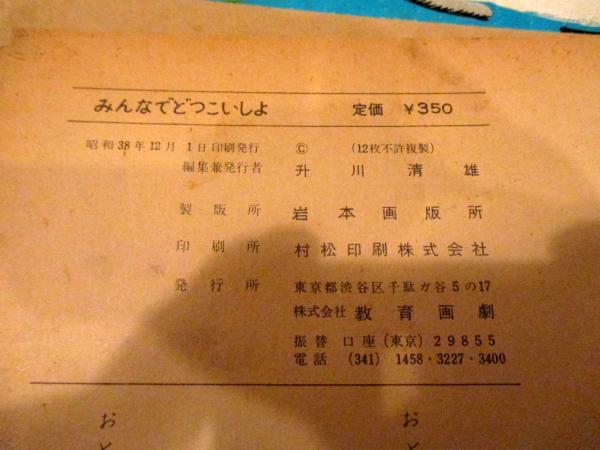 みんなでどつこいしよ 定価 ¥350
昭和38年12月 1日印刷発行 © (12枚不許複製)
編集兼発行者 升川清雄
製版所 岩本画版所
印刷所 村松印刷株式会社
発行所 東京都渋谷区千駄ガ谷5の17
株式会社 教育画劇
振替口座(東京)29855
電話 (341) 1458・3227・3400
おと
おと